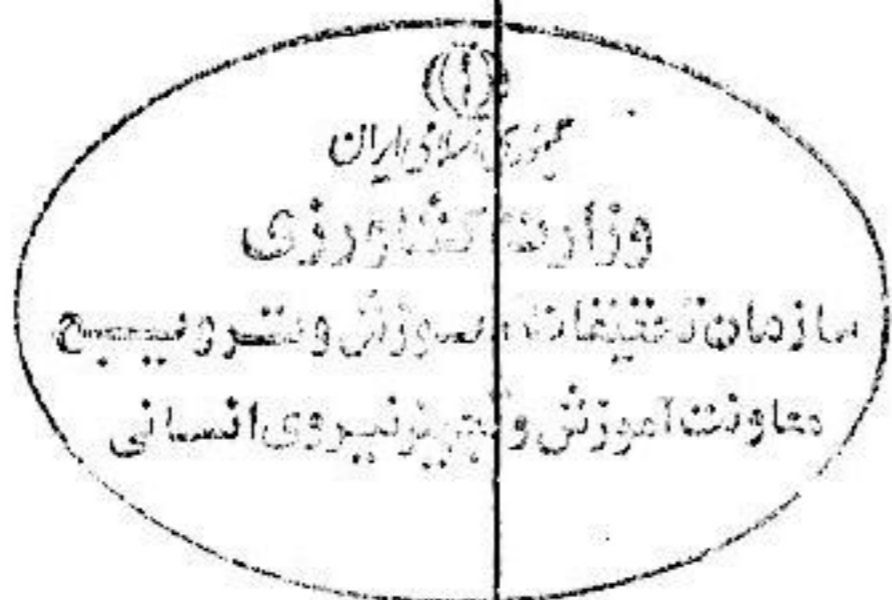 جمهوری اسلامی ایران
وزارت کشاورزی
سازمان تحقیقات، آموزش و ترویج
معاونت آموزش و تجهیز نیروی انسانی